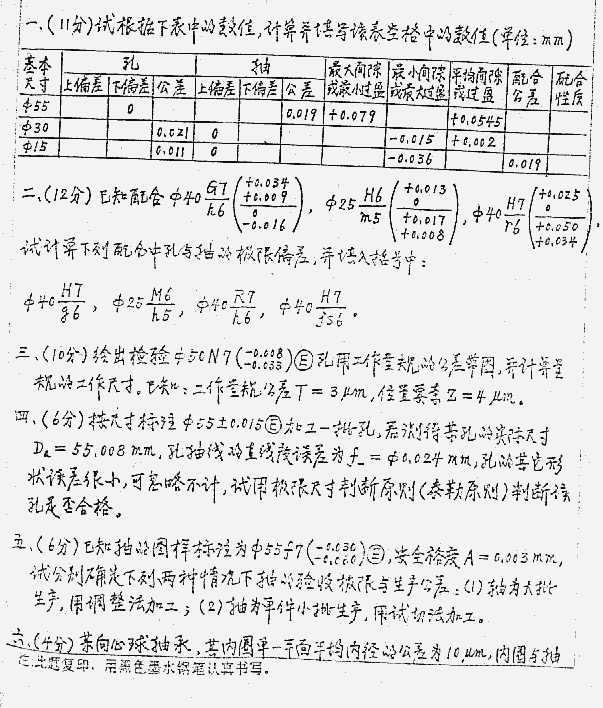 一、(11分)试根据下表中的数值,计算并填写该表空格中的数值(单位:mm)
基本尺寸 孔 轴 最大间隙或最小过盈 最小间隙或最大过盈 平均间隙或过盈 配合公差 配合性质
上偏差 下偏差 公差 上偏差 下偏差 公差
φ55 0 0.019 +0.079 +0.0545
φ30 0.021 0 -0.015 +0.002
φ15 0.011 0 -0.036 0.019
二、(12分) 已知配合 φ40 G7/h6 (+0.034 +0.009 / 0 -0.016), φ25 H6/m5 (+0.013 0 / +0.017 +0.008), φ40 H7/r6 (+0.025 0 / +0.050 +0.034).
试计算下列配合中孔与轴的极限偏差,并填入括号中:
φ40 H7/g6, φ25 M6/h5, φ40 R7/h6, φ40 H7/js6。
三、(10分) 绘出检验φ50N7(-0.008 -0.033)Ⓔ孔用工作量规的公差带图,并计算量
规的工作尺寸。已知:工作量规公差T=3μm,位置要素Z=4μm。
四、(6分) 按尺寸标注φ55±0.015Ⓔ加工一批孔,若测得某孔的实际尺寸
Da=55.008mm,孔轴线的直线度误差为f_=φ0.024mm,孔的其它形
状误差很小,可忽略不计,试用极限尺寸判断原则(泰勒原则)判断该
孔是否合格。
五、(6分) 已知轴的图样标注为φ55f7(-0.030 -0.060)Ⓔ,安全裕度A=0.003mm,
试分别确定下列两种情况下轴的验收极限与生产公差:(1)轴为大批
生产,用调整法加工;(2)轴为单件小批生产,用试切法加工。
六、(4分) 某向心球轴承,其内圈单一平面平均内径的公差为10μm,内圈与轴
此题复印、用黑色墨水钢笔认真书写。